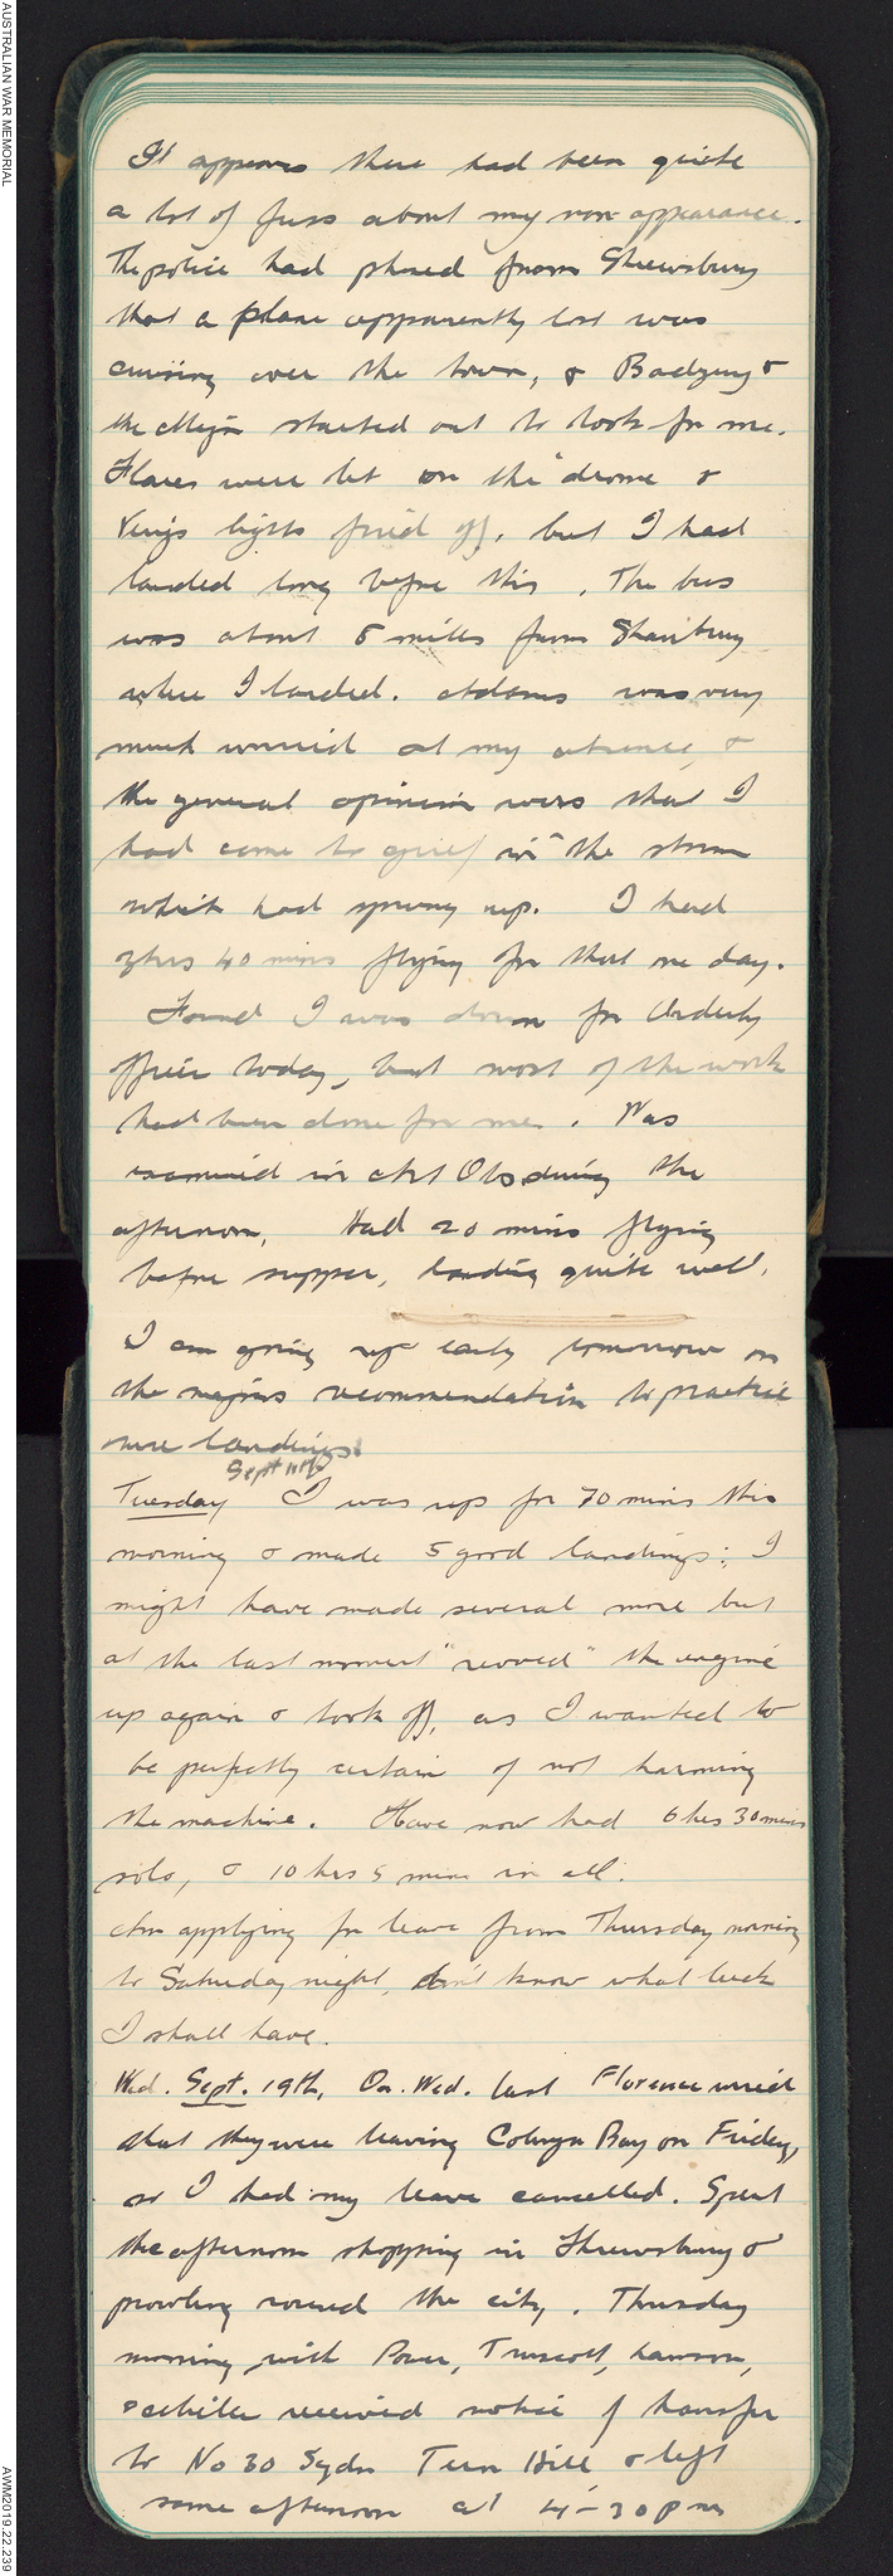 AUSTRALIAN WAR MEMORIAL
It appears there had been quite
a lot of fuss about my non appearance.
The police had phoned from Shrewsbury
that a plane apparently lost was
cruising over the town, &
the Major started out to look for me.
Flares were let on the 'drome &
Verys lights fired off, but I had
landed long before this. The bus
was about 5 miles from Shawbury
where I landed. Adams was very
much worried at my absence, &
the general opinion was that I
had come to grief in the storm
which had sprung up. I had
3hrs 40 mins flying for that one day.
Found I was down for Orderly
officer today, but most of the work
had been done for me. Was
examined in Art Obs during the
afternoon. Had 20 mins flying
before supper, landing quite well.
I am going up early tomorrow on
the majors recommendation to practise
more landings.
Sept 11th
Tuesday I was up for 70 mins this
morning & made 5 good landings; I
might have made several more but
at the last moment "revved" the engine
up again & took off, as I wanted to
be perfectly certain of not harming
the machine. Have now had 6 hrs 30 mins
solo, & 10 hrs 5 mins in all.
Am applying for leave from Thursday morning
to Saturday night, don't know what luck
I shall have.
Wed. Sept. 19th, On Wed. last Florence wired
that they were leaving Colwyn Bay on Friday,
so I had my leave cancelled. Spent
the afternoon shopping in Shrewsbury &
prowling round the city. Thursday
morning, with Power, Truscott, Lawson,
& received notice of transfer
to No 30 Sqdn Tern Hill & left
same afternoon at 4-30 pm
AWM2019.22.239